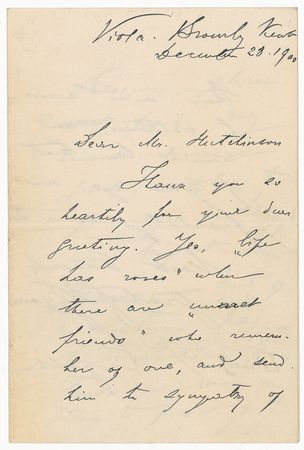 Viola. Bromley Kent
December 28. 1900
Dear Mr. Hutchinson
Thank you so
heartily for your dear
greeting. Yes, "life
has roses" when
there are "unmet
friends" who remem-
ber of one, and send
him the sympathy of